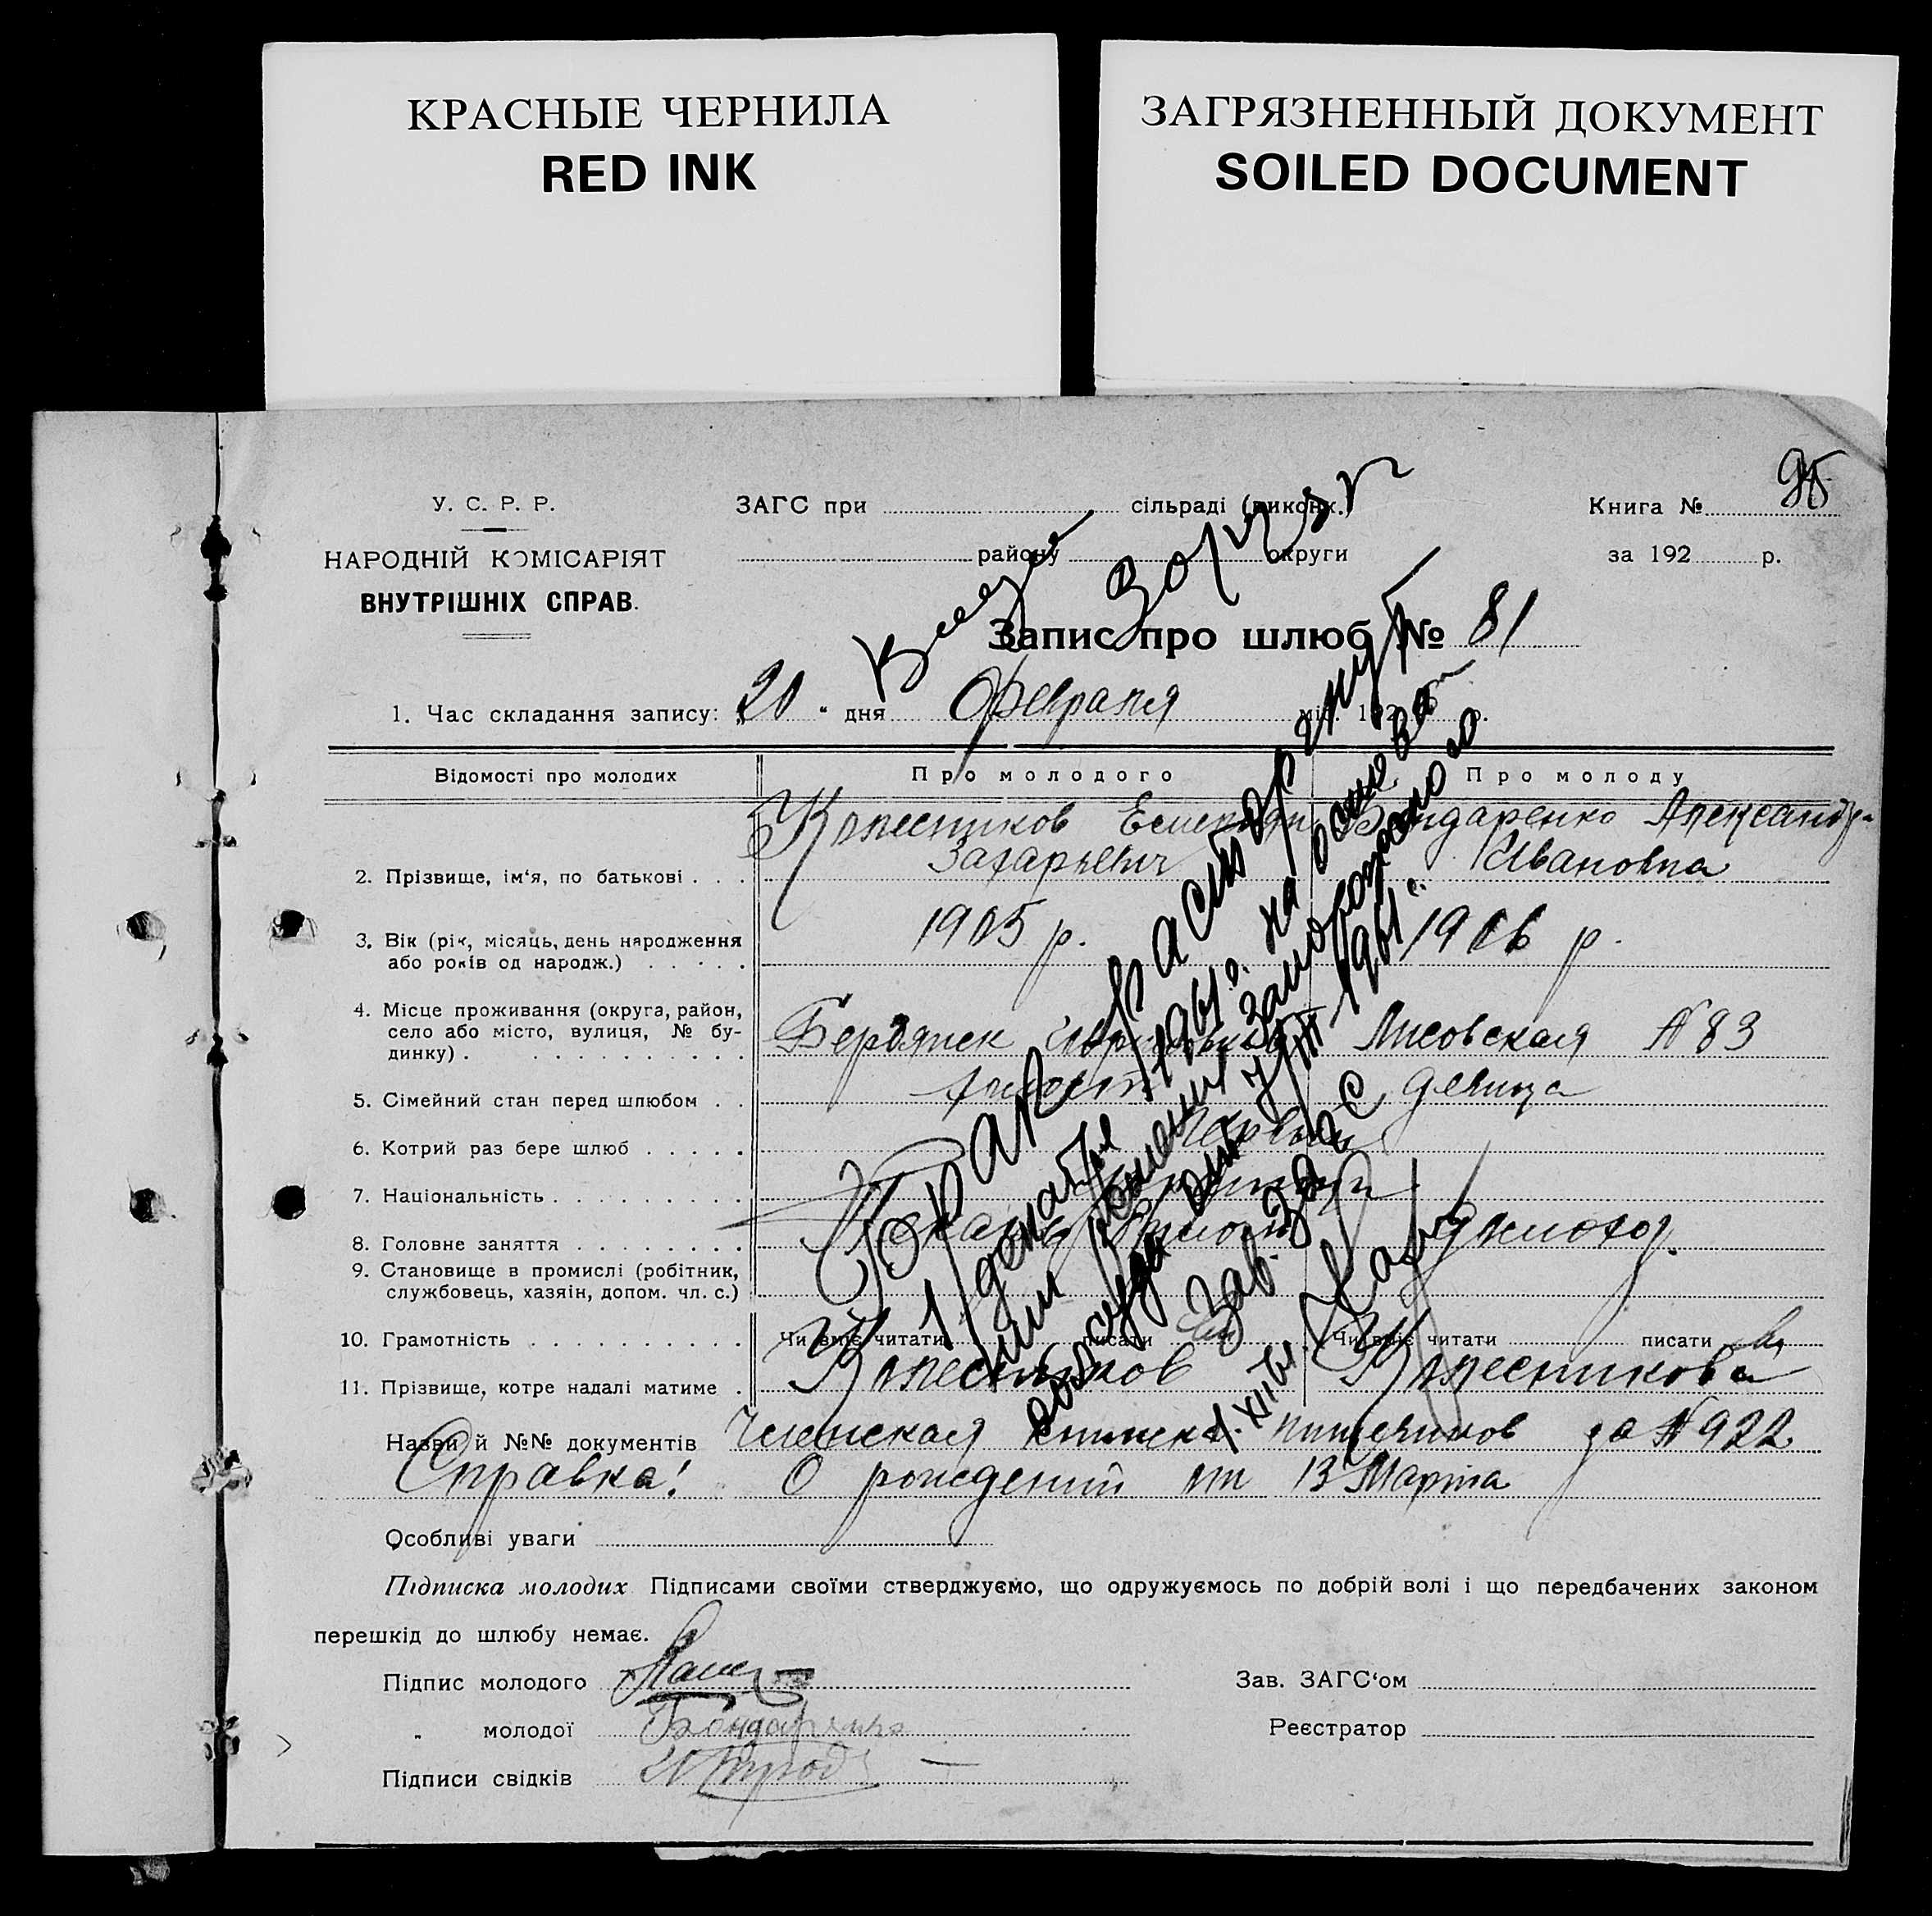 КРАСНЫЕ ЧЕРНИЛА
RED INK
ЗАГРЯЗНЕННЫЙ ДОКУМЕНТ
SOILED DOCUMENT
95
У. С. Р. Р.
НАРОДНІЙ КОМІСАРІЯТ
ВНУТРІШНІХ СПРАВ.
ЗАГС при сільраді (виконк.)
району округи
Книга №
за 192 р.
Запис про шлюб № 81
1. Час складання запису: 20 " дня Февраля міс. 192 р.
Відомості про молодих Про молодого Про молоду
Колесников Бондаренко Александра
2. Прізвище, ім'я, по батькові . . . Захарьевич Ивановна
3. Вік (рік, місяць, день народження 1905 р. 1906 р.
або років од народж.) . . . . .
4. Місце проживання (округа, район,
село або місто, вулиця, № бу-
динку) . . . . . . . . . . . Бердянск Лисовская № 83
5. Сімейний стан перед шлюбом . . холост девица
6. Котрий раз бере шлюб . . . . . Первый
7. Національність . . . . . . . . .
8. Головне заняття . . . . . . . . Пекарь домохоз.
9. Становище в промислі (робітник,
службовець, хазяїн, допом. чл. с.)
10. Грамотність . . . . . . . . . . Чи вміє читати писати Чи вміє читати писати
11. Прізвище, котре надалі матиме . Колесников Колесникова
Назви й №№ документів Членская книжка пищевиков за № 922
Справка! О рождении от 13 Марта
Особливі уваги
Підписка молодих Підписами своїми стверджуємо, що одружуємось по добрій волі і що передбачених законом
перешкід до шлюбу немає.
Підпис молодого
Зав. ЗАГС'ом
„ молодої Бондаренко
Реєстратор
Підписи свідків
Брак расторгнут
1/декабря 1961 г. на основа-
нии решения Запорожского
облсуда от 1961 г.
Зав. Загс